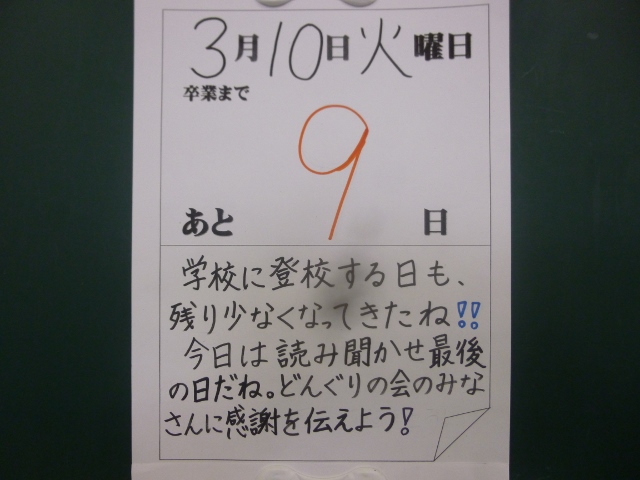 3月10日火曜日
卒業まで
9
あと 日
学校に登校する日も、
残り少なくなってきたね!!
今日は読み聞かせ最後
の日だね。どんぐりの会のみな
さんに感謝を伝えよう!